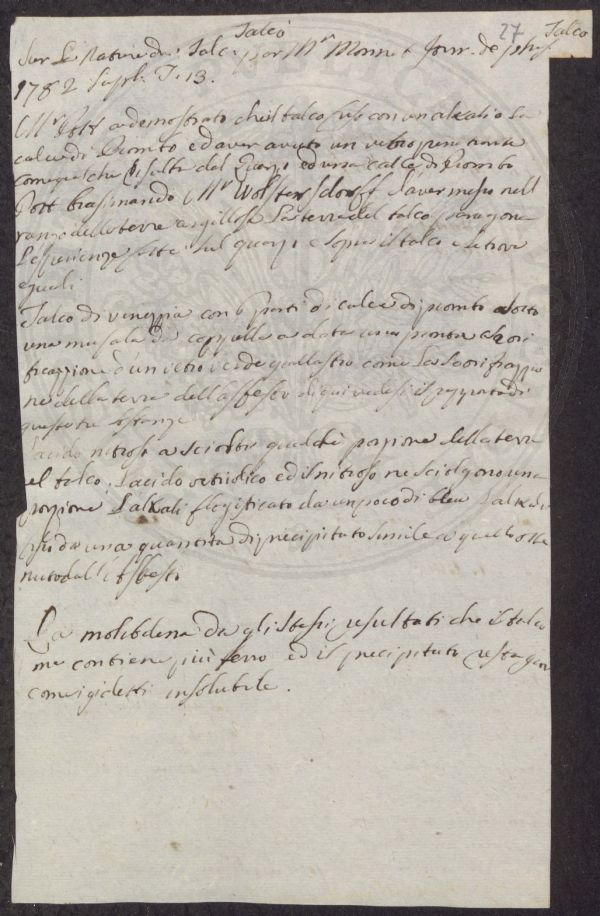 Talco
27
Talco
Sur la Nature du Talc par Mr Monnet Jour. de phys
1782 Supl. T. 13.
Mr Pott a demostrato che il talco fuso con un alcalio la
calce di Piombo ed aver avuto un vetro
come quel che risulta dal Quarzo ed una calce di Piombo
Pott biasimando Mr Wolstersdorff d'aver messo nell
rango delle terre argillose la terra del talco paragona
l'esperienze fatte sul quarzo e sopra il talco e le trova
eguali
Talco di venezzia con 6 parti di calce di piombo sotto
una mufala di coppella a data una pronta scori
ficazzione d'un vetro verde giallastro come la scorificazzio
ne della terra dell'asbesto di qui vedesi il rapporto di
queste tre sostanze
L'acido nitroso a sciolto qualche porzione della terra
el talco. L'acido vetriolico ed il nitroso ne sciolgono una
porzione L'alkali flogisticato da un poco di bleu L'alkali
da una quantita di precipitato simile a quello otte
nuto dall'Asbesto
La molibdena da gli stessi resultati che il talco
ma contiene più ferro ed il precipitato resta
come insolubile.